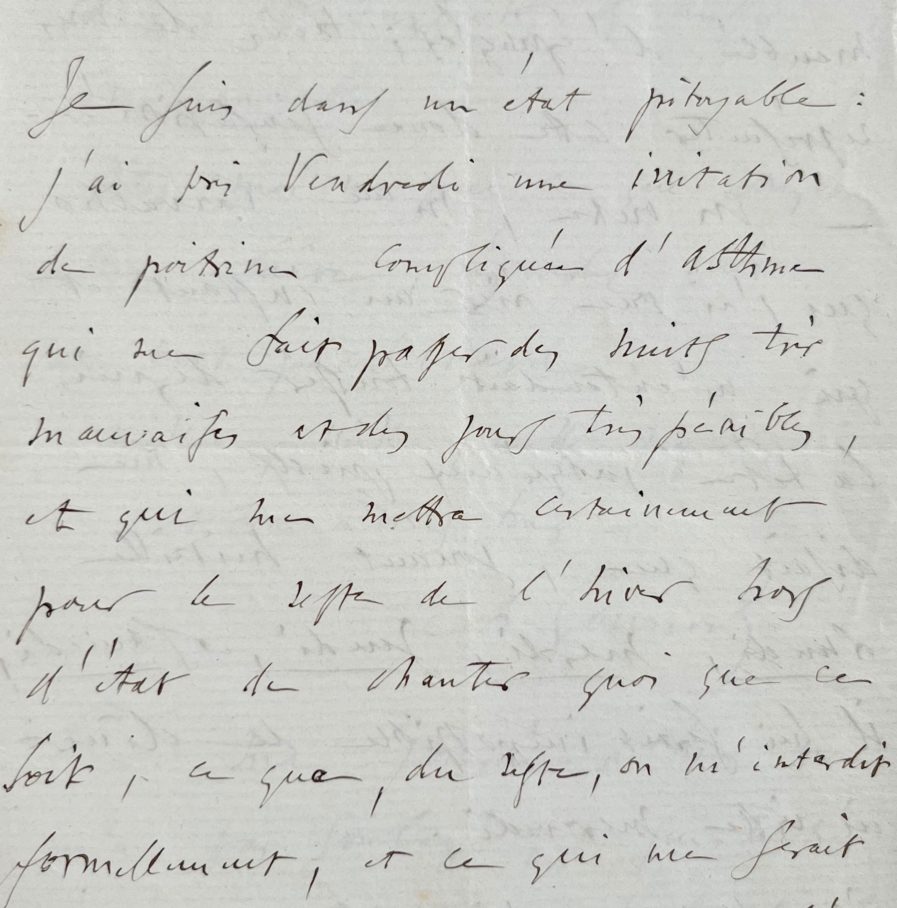 Je suis dans un état pitoyable :
j'ai pris Vendredi une irritation
de poitrine compliquée d'asthme
qui me fait passer des nuits très
mauvaises et des jours très pénibles,
et qui me mettra certainement
pour le reste de l'hiver hors
d'état de chanter quoi que ce
soit ; ce que, du reste, on m'interdit
formellement, et ce qui me serait